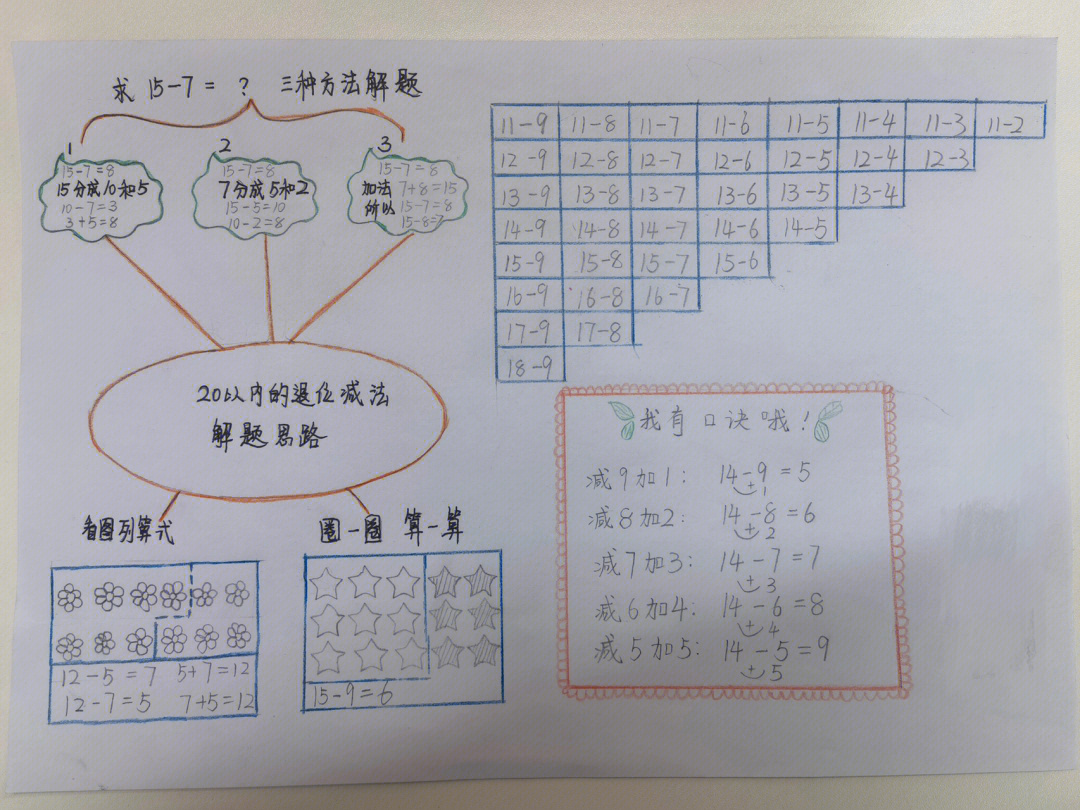 求 15-7 = ? 三种方法解题
1
15-7=8
15分成10和5
10-7=3
3+5=8
2
15-7=8
7分成5和2
15-5=10
10-2=8
3
15-7=8
加法 7+8=15
所以 15-7=8
15-8=7
20以内的退位减法
解题思路
看图列算式
12-5=7 5+7=12
12-7=5 7+5=12
圈一圈 算一算
15-9=6
11-9 11-8 11-7 11-6 11-5 11-4 11-3 11-2
12-9 12-8 12-7 12-6 12-5 12-4 12-3
13-9 13-8 13-7 13-6 13-5 13-4
14-9 14-8 14-7 14-6 14-5
15-9 15-8 15-7 15-6
16-9 16-8 16-7
17-9 17-8
18-9
我有口诀哦!
减9加1: 14-9=5
+1
减8加2: 14-8=6
+2
减7加3: 14-7=7
+3
减6加4: 14-6=8
+4
减5加5: 14-5=9
+5